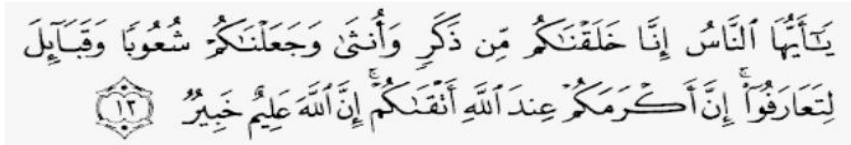 يَـٰٓأَيُّهَا ٱلنَّاسُ إِنَّا خَلَقْنَـٰكُم مِّن ذَكَرٍ وَأُنثَىٰ وَجَعَلْنَـٰكُمْ شُعُوبًا وَقَبَآئِلَ
لِتَعَارَفُوٓا۟ ۚ إِنَّ أَكْرَمَكُمْ عِندَ ٱللَّهِ أَتْقَىٰكُمْ ۚ إِنَّ ٱللَّهَ عَلِيمٌ خَبِيرٌ ﴿١٣﴾